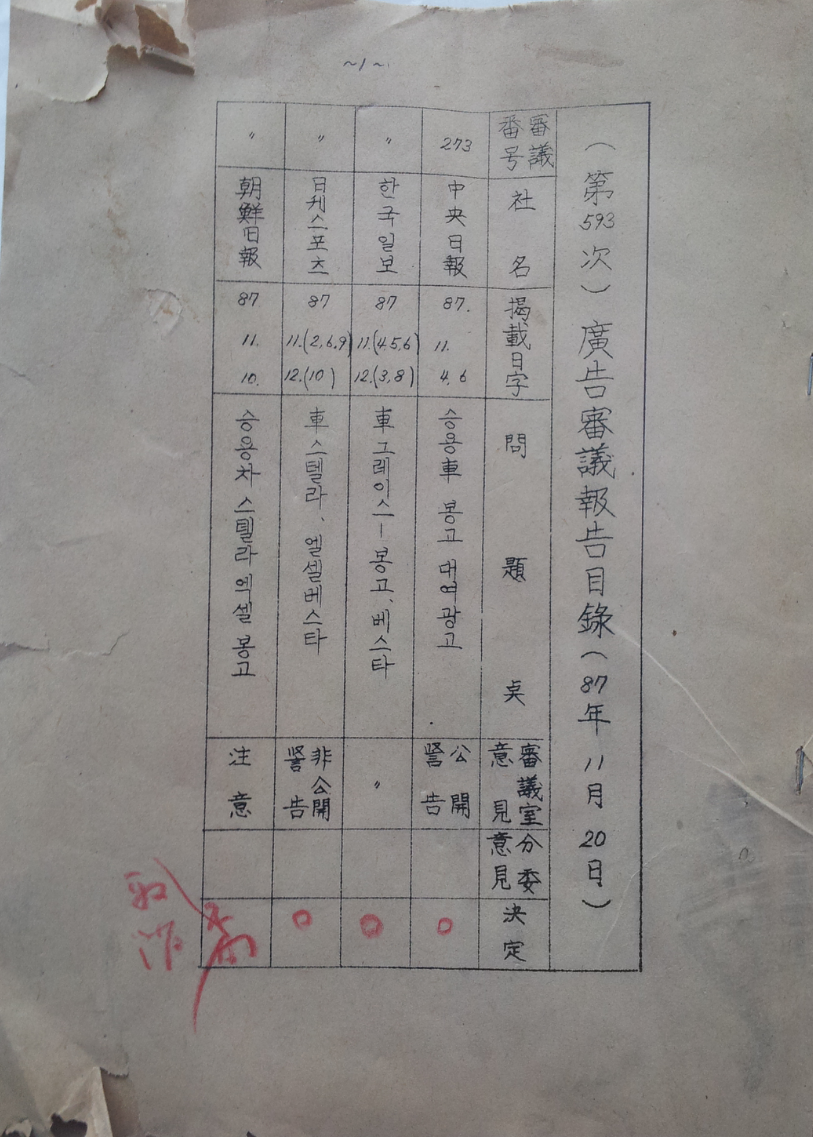 ~1~
(第593次) 廣告審議報告目錄 (87年 11月 20日)
審議番号
社名
揭載日字
問題点
審議室意見
分委意見
決定
273
中央日報
87. 11. 4, 6
승용車 봉고 대여광고
公開警告
○
〃
한국일보
87 11.(4,5,6) 12.(3,8)
車 그레이스-봉고, 베스타
〃
○
〃
日刊스포츠
87 11.(2,6,9) 12.(10)
車 스텔라, 엘셀베스타
非公開警告
○
〃
朝鮮日報
87 11. 10.
승용차 스텔라 엑셀 봉고
注意